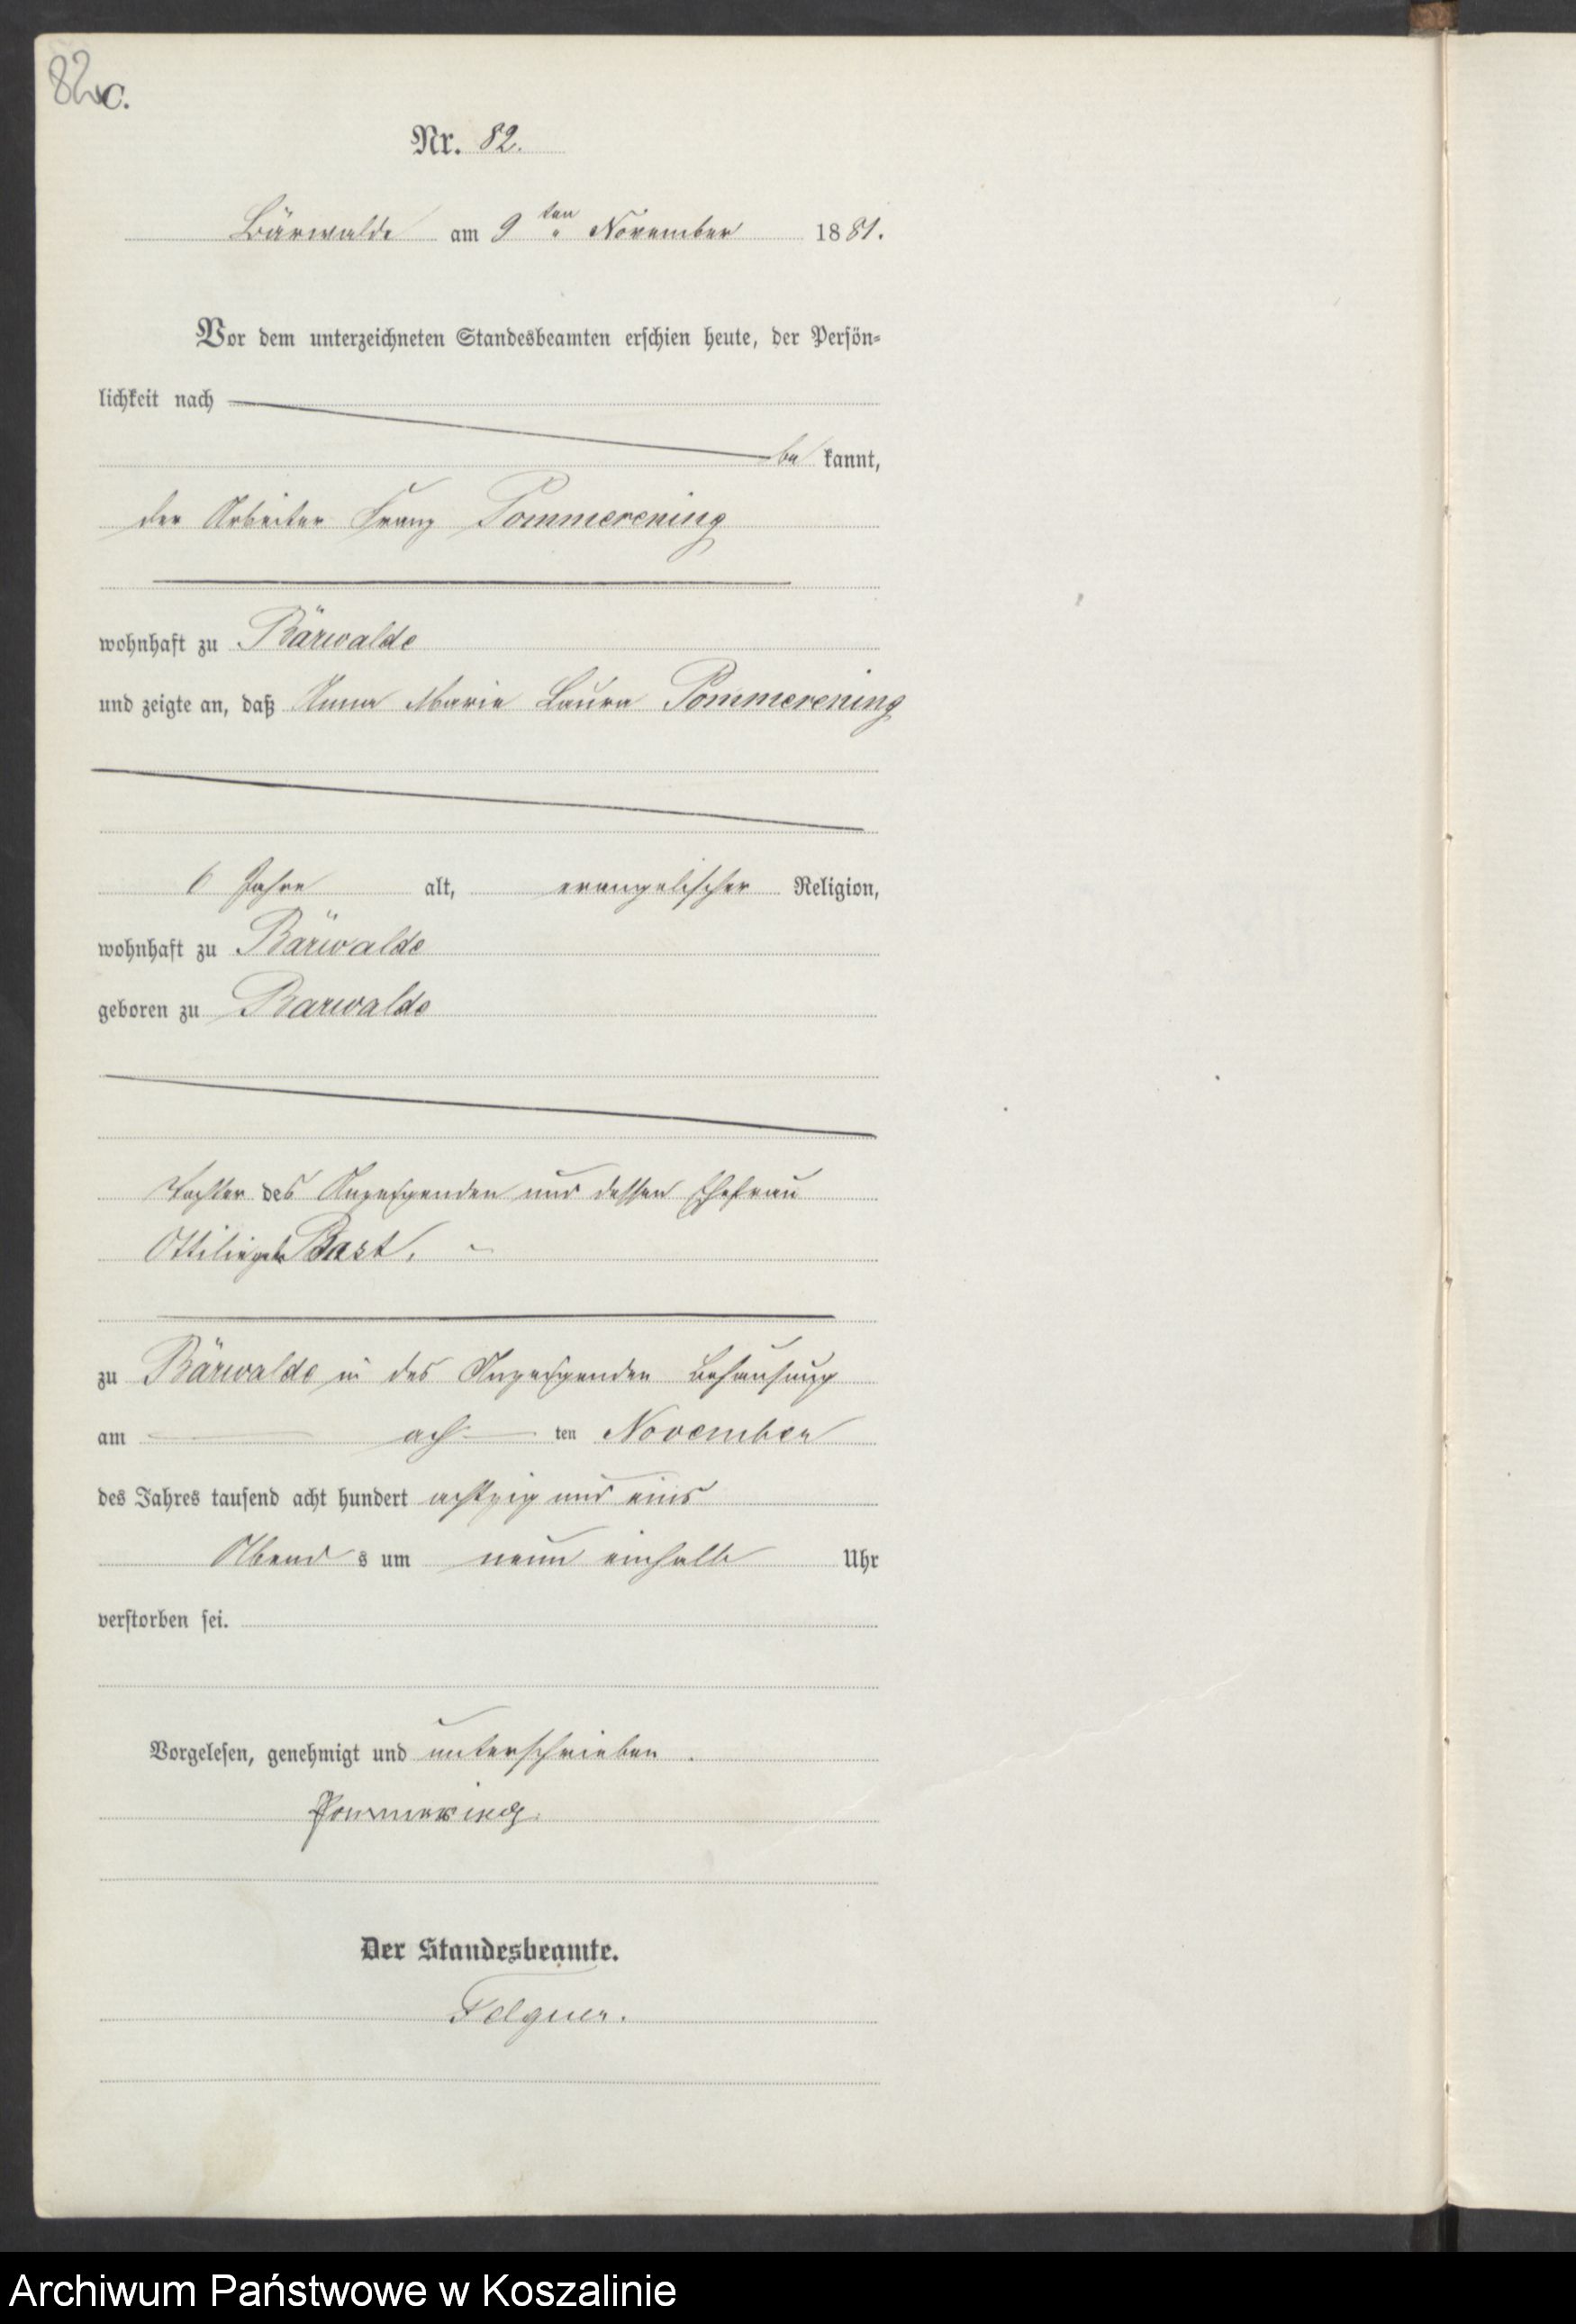 82
C.
Nr. 82.
Bärwalde am 9ten November 1881.
Vor dem unterzeichneten Standesbeamten erschien heute, der Persön-
lichkeit nach
be kannt,
der Arbeiter Franz Pommerening
wohnhaft zu Bärwalde
und zeigte an, daß Anna Marie Laura Pommerening
6 Jahre alt, evangelischer Religion,
wohnhaft zu Bärwalde
geboren zu Barwalde
Tochter des Anzeigenden und dessen Ehefrau
Ottilie geb. Bast.
zu Bärwalde in des Anzeigenden Behausung
am ach ten November
des Jahres tausend acht hundert achtzig und eins
Abend s um neun einhalb Uhr
verstorben sei.
Vorgelesen, genehmigt und unterschrieben.
Der Standesbeamte.
Archiwum Państwowe w Koszalinie